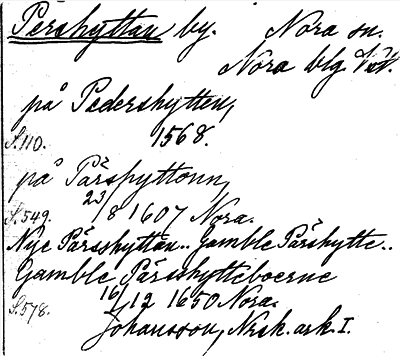 Pershyttan by. Nora sn.
Nora blg. Väst.
på Pedershytten,
S.110. 1568.
på Pärspyttonn,
S.549. 23/8 1607 Nora.
Nye Pärsshyttan.. Gamble Pärshytte..
Gamble Pärsshytteboerne
S.578. 16/12 1650 Nora.
Johansson, Nrsk. ark. I.